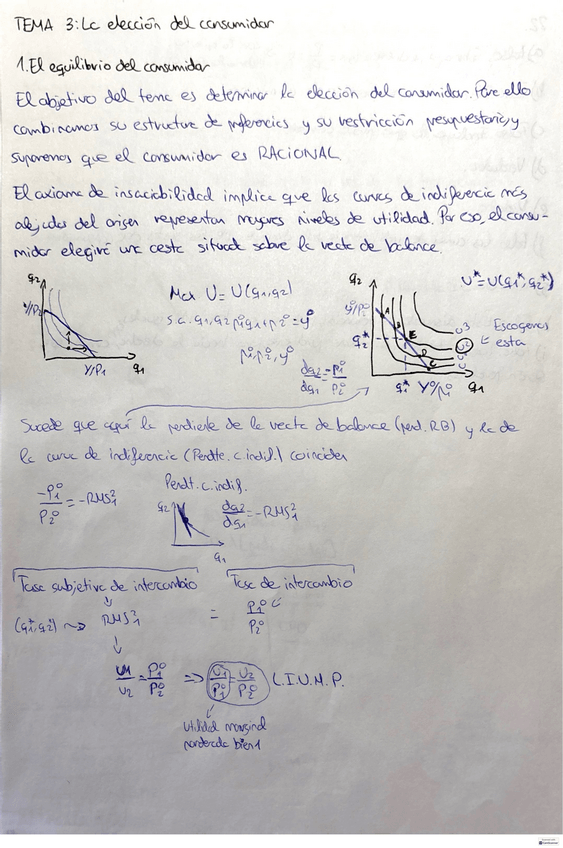 TEMA 3: La elección del consumidor
1. El equilibrio del consumidor
El objetivo del tema es determinar la elección del consumidor. Para ello
combinamos su estructura de preferencias y su restricción presupuestaria, y
suponemos que el consumidor es RACIONAL
El axioma de insaciabilidad implica que las curvas de indiferencia más
alejadas del origen representan mayores niveles de utilidad. Por eso, el consu-
midor elegirá una cesta situada sobre la recta de balance.
q2
Y/P2
Y/P1
q1
Max U = U(q1, q2)
s.a. q1, q2 P1⁰q1 + P2⁰ = y⁰
P1⁰, P2⁰, y⁰
dq2/dq1 = -P1⁰/P2⁰
q2
y⁰/P2⁰
q2*
A
B
E
D
C
q1*
Y⁰/P1⁰
q1
U³
U²
U* = U(q1*, q2*)
Escogemos
esta
Sucede que aquí la pendiente de la recta de balance (pend. RB) y la de
la curva de indiferencia (Pendte. c. indif.) coinciden
-P1⁰/P2⁰ = -RMS₁²
Pendt. c. indif.
q2
q1
dq2/dq1 = -RMS₁²
Tasa subjetiva de intercambio
Tasa de intercambio
(q1*, q2*) ⤳ RMS₁² = P1⁰/P2⁰
U1/U2 = P1⁰/P2⁰ ⇒ U1/P1⁰ = U2/P2⁰ L.I.U.M.P.
Utilidad marginal
ponderada bien 1